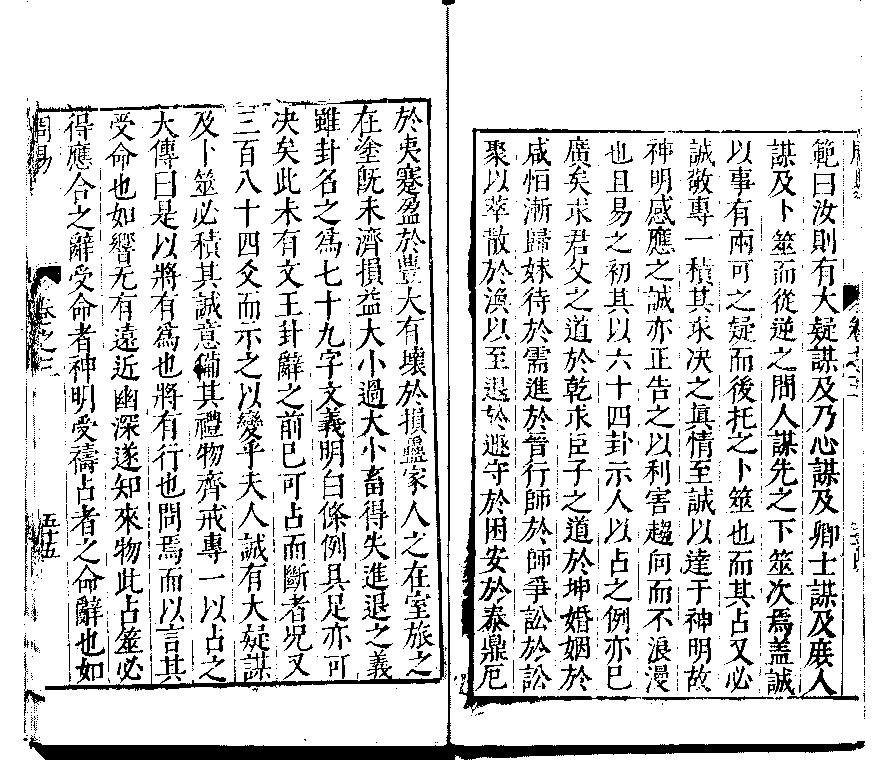 範曰汝則有大疑謀及乃心謀及卿士謀及庶人
謀及卜筮而從逆之間人謀先之下筮次焉蓋誠
以事有兩可之疑而後托之卜筮也而其占又必
誠敬專一積其求决之眞情至誠以達于神明故
神明感應之誠亦正告之以利害趨向而不浪漫
也且易之初其以六十四卦示人以占之例亦已
廣矣求君父之道於乾求臣子之道於坤婚姻於
咸恒漸歸妹待於需進於晉行師於師爭訟於訟
聚以萃散於渙以至退於遯守於困安於泰鼎厄
於夷蹇盈於豐大有壞於損蠱家人之在室旅之
在塗旣未濟損益大小過大小畜得失進退之義
雖卦名之爲七十九字文義明白條例具足亦可
决矣此未有文王卦辭之前已可占而斷者况又
三百八十四爻而示之以變乎夫人誠有大疑謀
及卜筮必積其誠意備其禮物齊戒專一以占之
大傳曰是以將有爲也將有行也問焉而以言其
受命也如響无有遠近幽深遂知來物此占筮必
得應合之辭受命者神明受禱占者之命辭也如
周易
卷之三
五十五